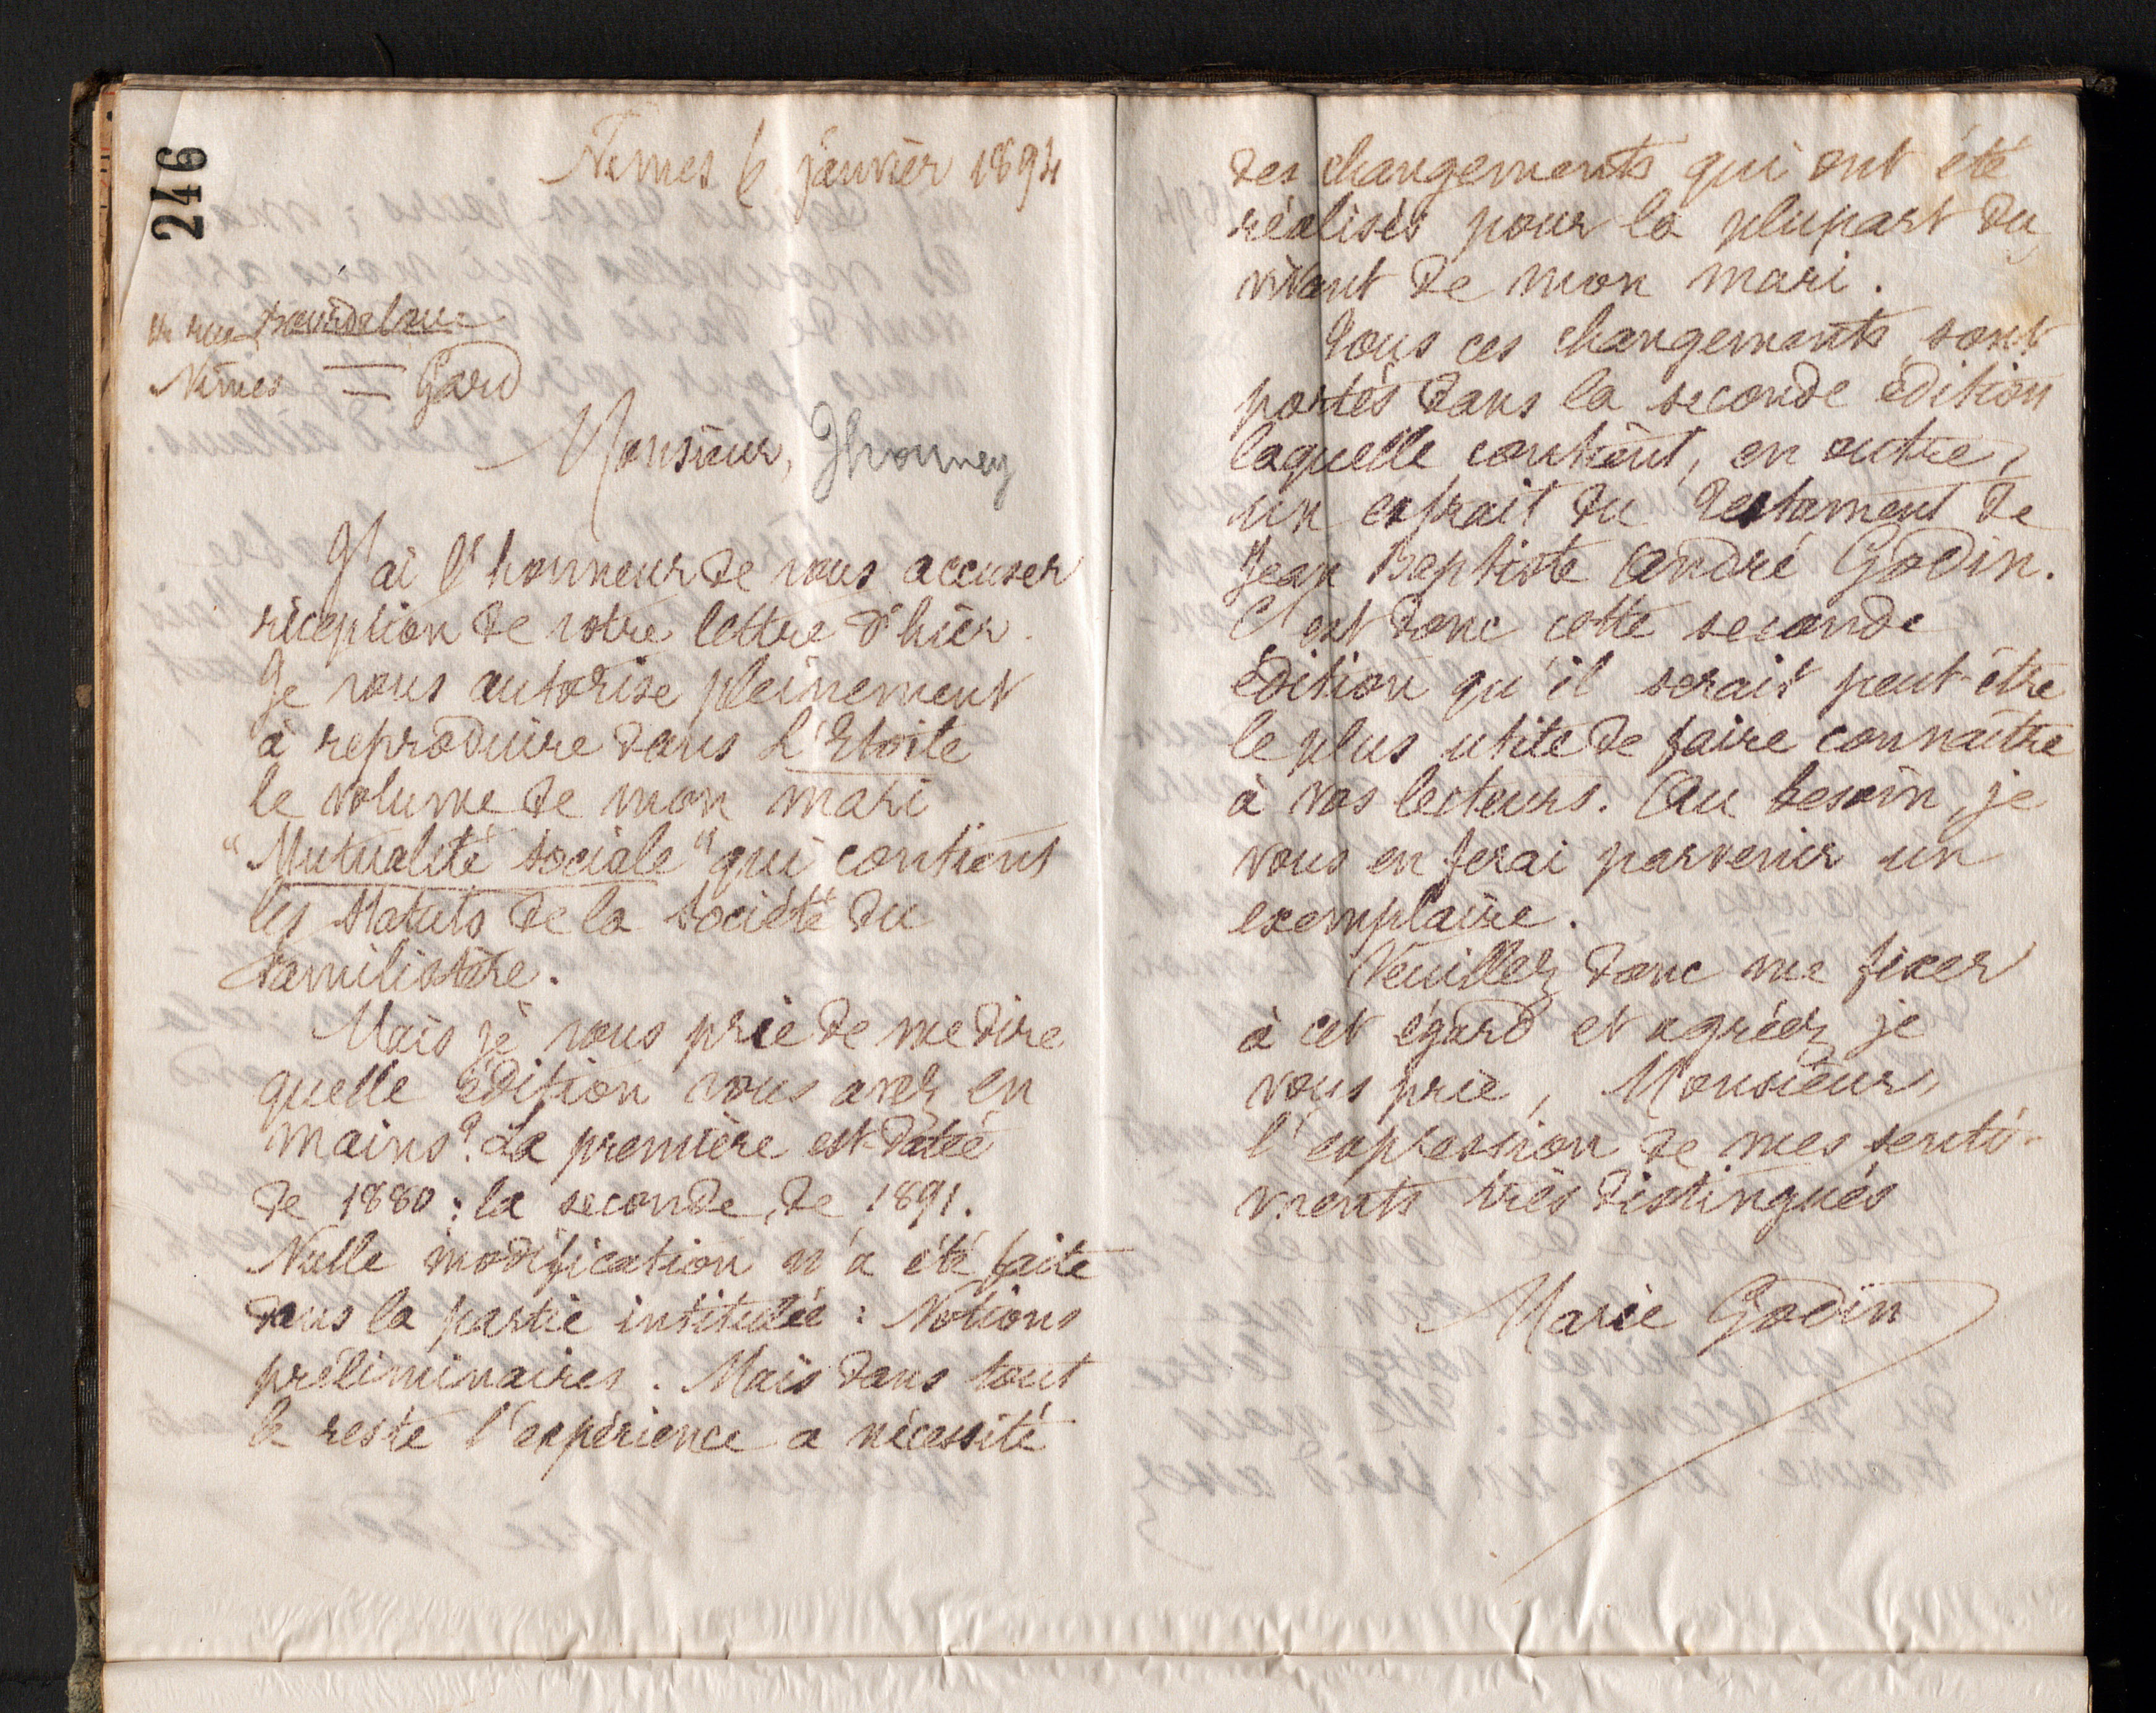 246
Nîmes 6 janvier 1894
rue Bourdaloue
Nîmes = Gard
Monsieur, Jhouney
J'ai l'honneur de vous accuser
réception de votre lettre d'hier.
Je vous autorise pleinement
à reproduire dans L'Etoile
le volume de mon mari
"Mutualité sociale" qui contient
les statuts de la Société du
Familistère.
Mais je vous prie de me dire
quelle édition vous avez en
mains? La première est datée
de 1880; la seconde, de 1891.
Nulle modification n'a été faite
dans la partie intitulée : Notions
préliminaires. Mais dans tout
le reste l'expérience a nécessité
des changements qui ont été
réalisés pour la plupart du
vivant de mon mari.
Tous ces changements sont
portés dans la seconde édition
laquelle contient, en outre,
un extrait du testament de
Jean Baptiste André Godin.
C'est donc cette seconde
édition qu'il serait peut-être
le plus utile de faire connaître
à vos lecteurs. Au besoin, je
vous en ferai parvenir un
exemplaire.
Veuillez donc me fixer
à cet égard et agréez, je
vous prie, Monsieur,
l'expression de mes senti-
ments très distingués
Marie Godin